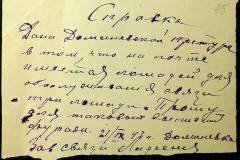 85
Справка
Дана Доманевской претуре
в том что на почте
имеется лошадей для
обслуживания связи
три лошади. Прошу
для таковых
фуража. 21/IX 42г. Доманевка
Зав связи